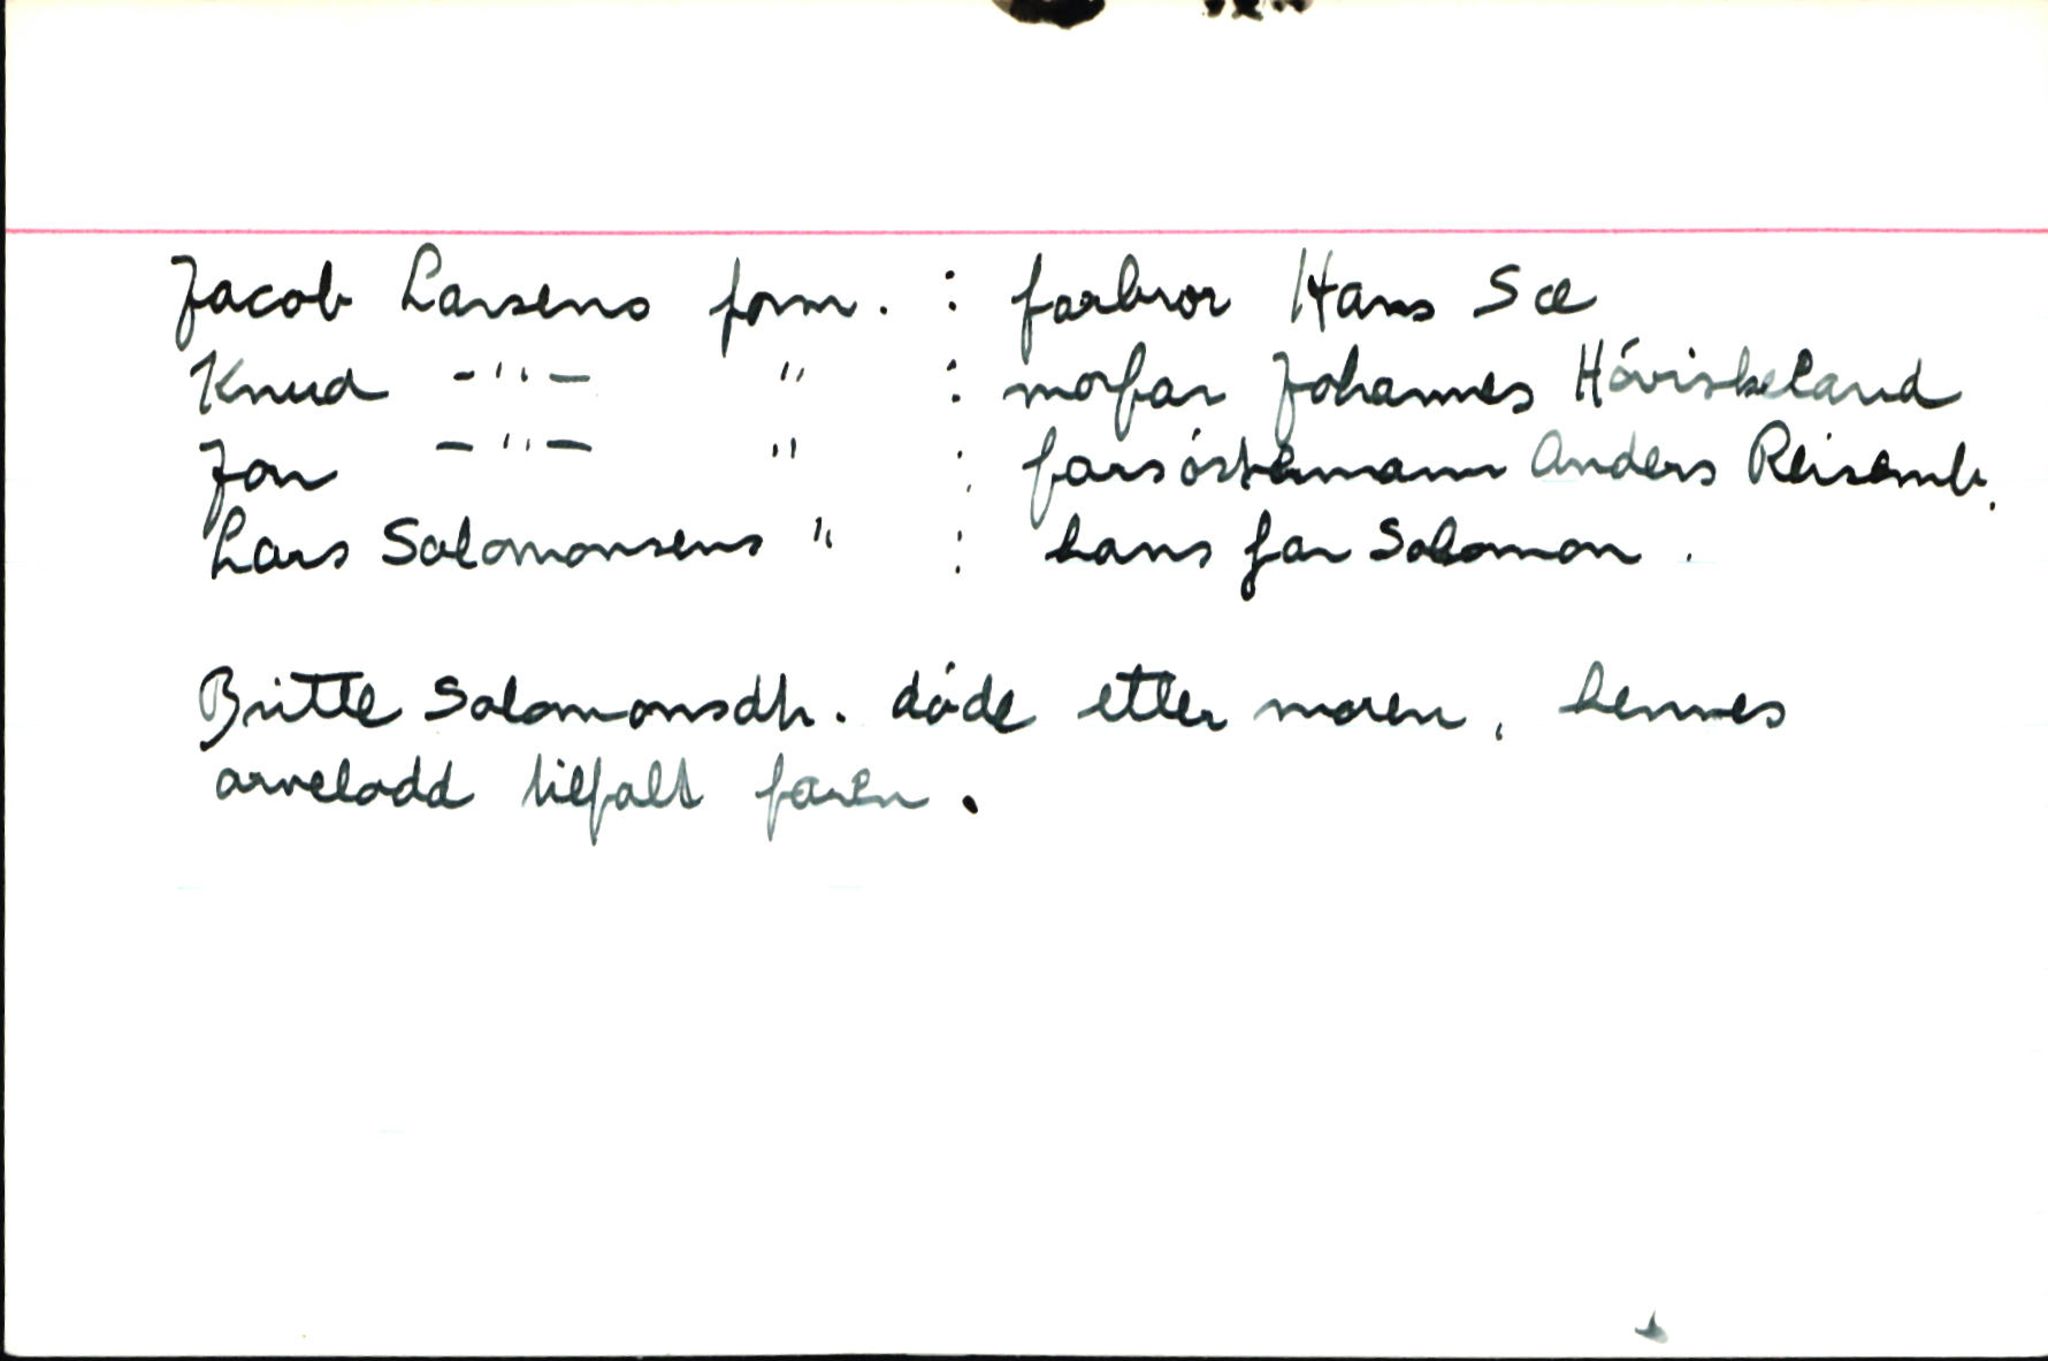 Jacob Larsens form. : farbror Hans Sæ
Knud -"- " : morfar Johannes Höviskeland
Jon -"- " : farsöstermann Anders Reisemb.
Lars Salomonsens " : hans far Salomon.
Britte Salomonsdtr. döde etter moren, hennes
arvelodd tilfalt faren.